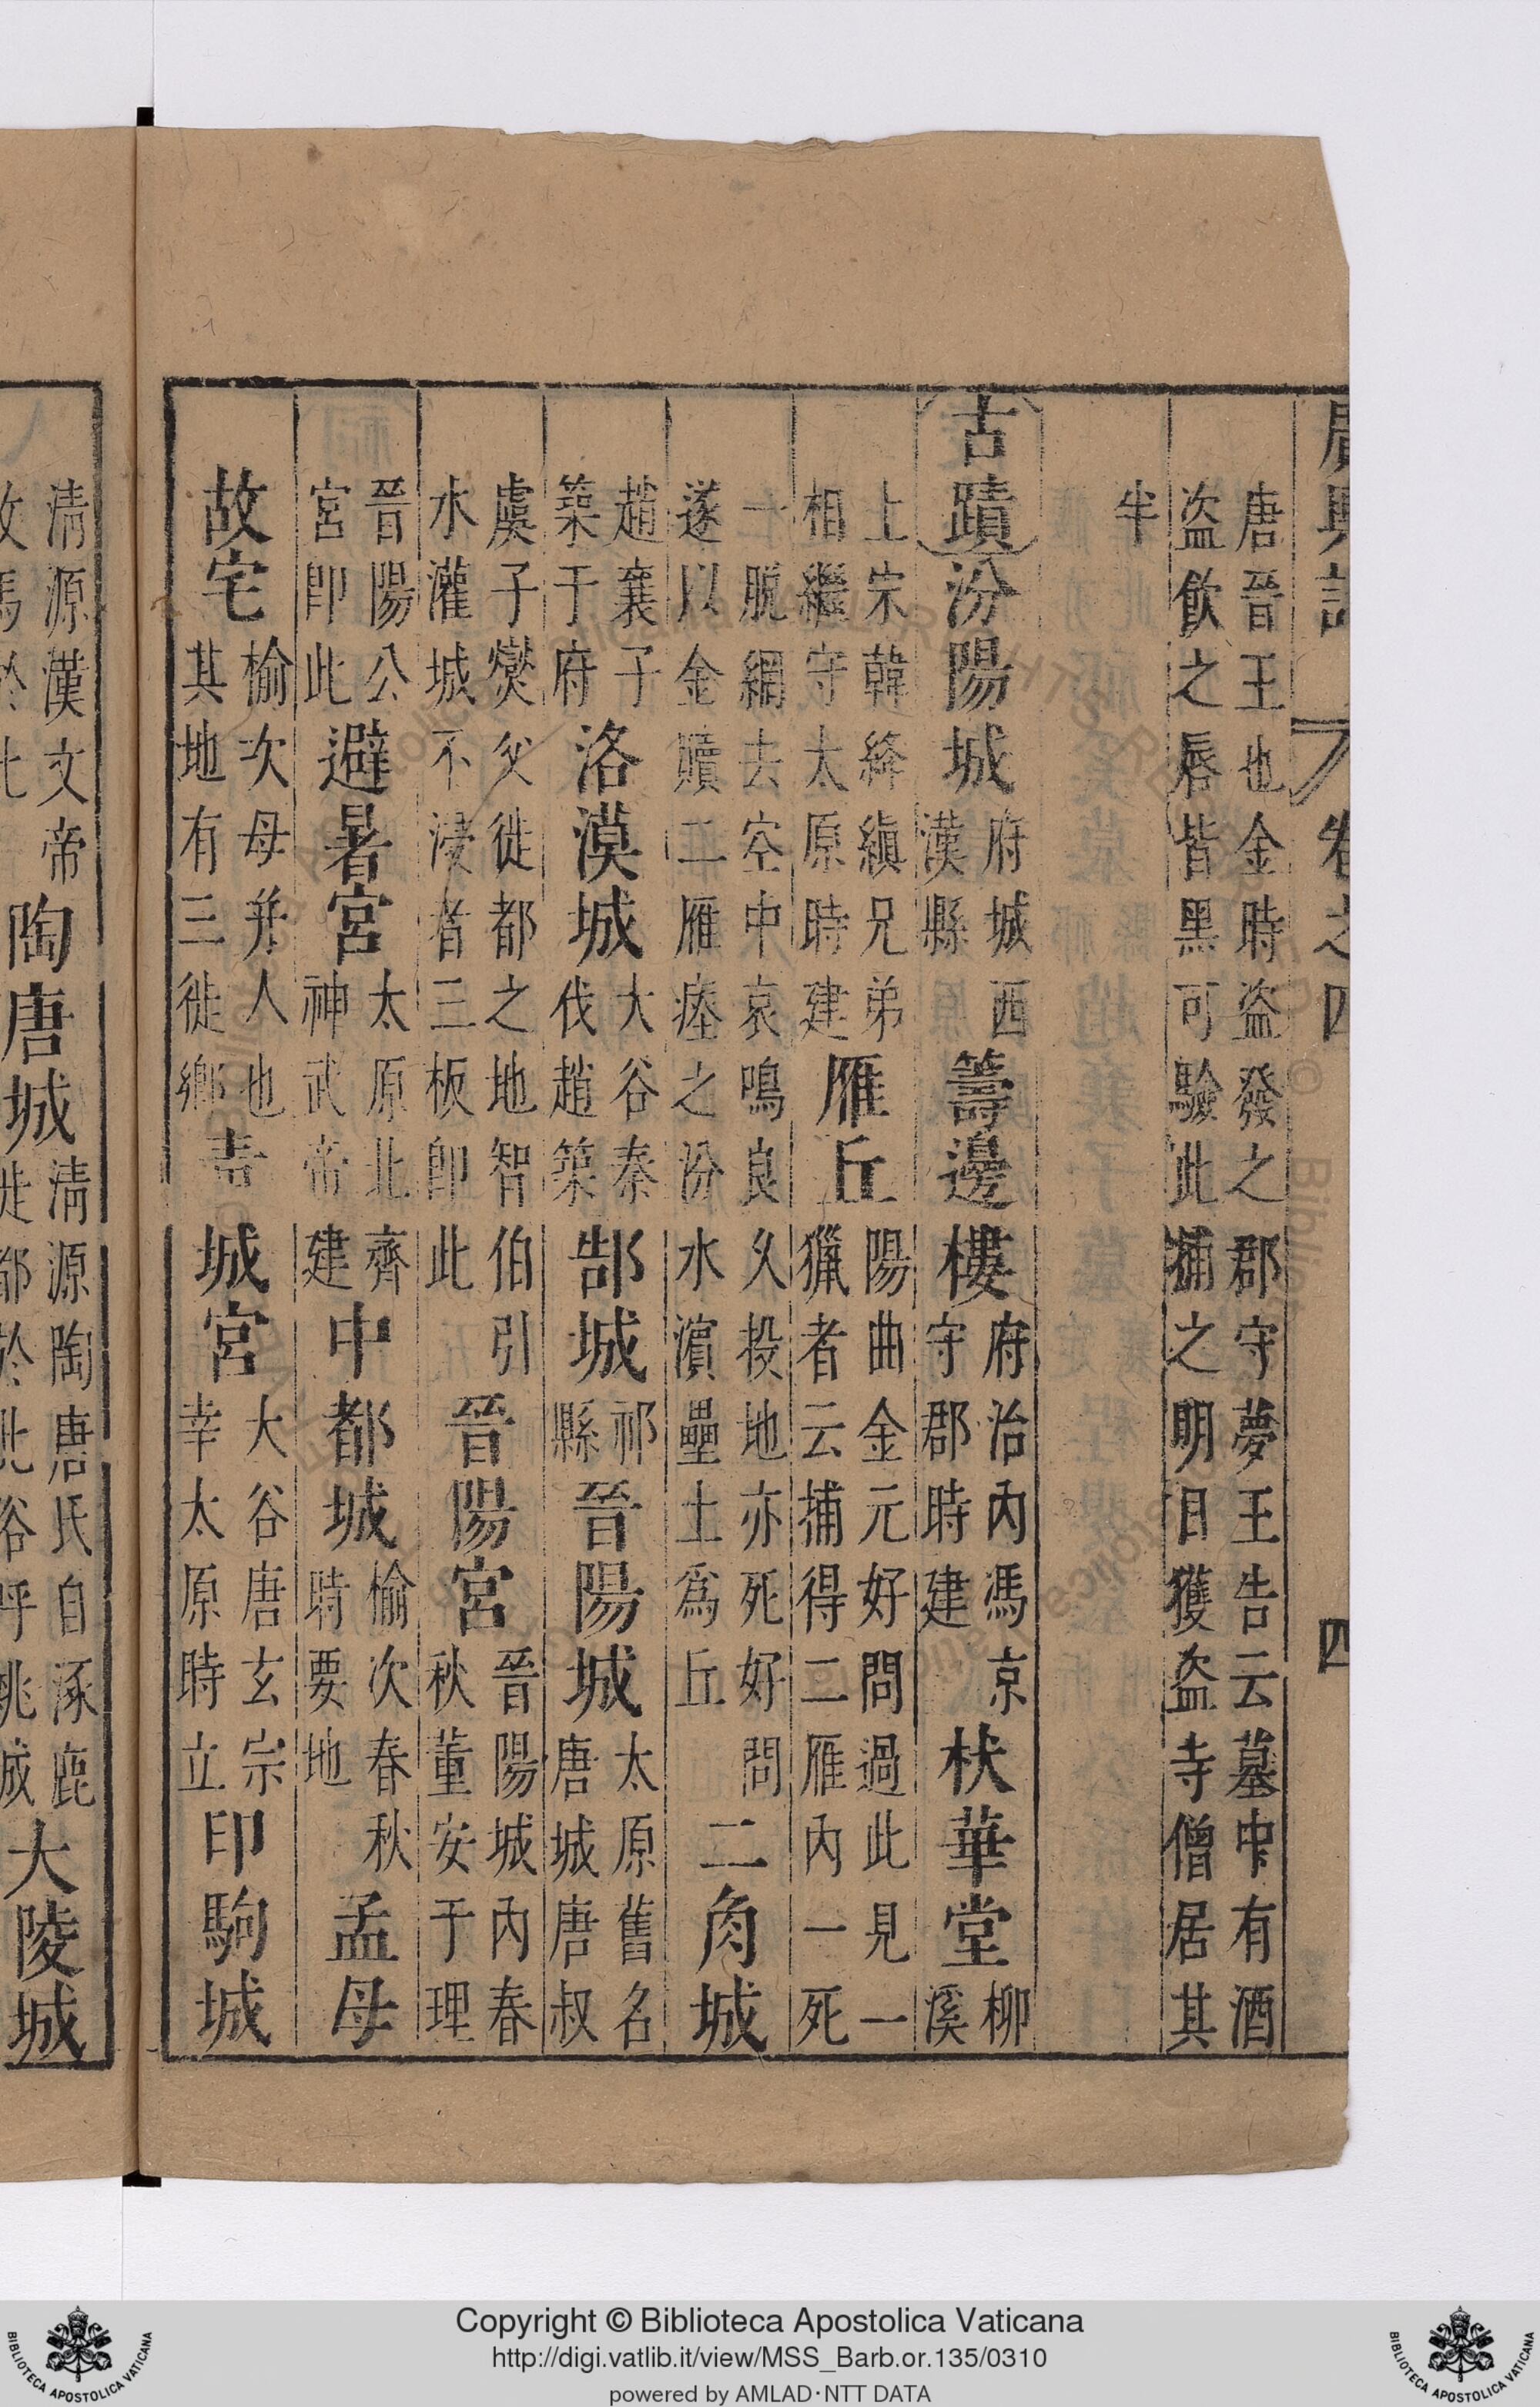 廣輿記 卷之四 四
唐晉王也金時盜發之郡守夢王告云墓中有酒
盜飲之唇皆黑可驗此捕之明日獲盜寺僧居其
半
古蹟 汾陽城 府城西
漢縣 籌邊樓 府治內馮京
守郡時建 棣華堂 柳
溪
上宋韓絳縝兄弟
相繼守太原時建 雁丘 陽曲金元好問過此見一
獵者云捕得二雁內一死
一脫網去空中哀鳴良久投地亦死好問
遂以金贖二雁瘞之汾水濱壘土爲丘 二角城
趙襄子
築于府 洛漠城 大谷秦
伐趙築 郜城 祁
縣 晉陽城 太原舊名
唐城唐叔
虞子燮父徙都之地智伯引
水灌城不浸者三板即此 晉陽宮 晉陽城內春
秋董安于理
晉陽公
宮即此 避暑宮 太原北齊
神武帝建 中都城 榆次春秋
時要地 孟母
故宅 榆次母并人也
其地有三徙鄉 青城宮 大谷唐玄宗
幸太原時立 印駒城
清源漢文帝
牧馬於此 陶唐城 清源陶唐氏自涿鹿
徙都於此俗呼姚城 大陵城
Copyright © Biblioteca Apostolica Vaticana
http://digi.vatlib.it/view/MSS_Barb.or.135/0310
powered by AMLAD·NTT DATA
BIBLIOTECA APOSTOLICA VATICANA
BIBLIOTECA APOSTOLICA VATICANA